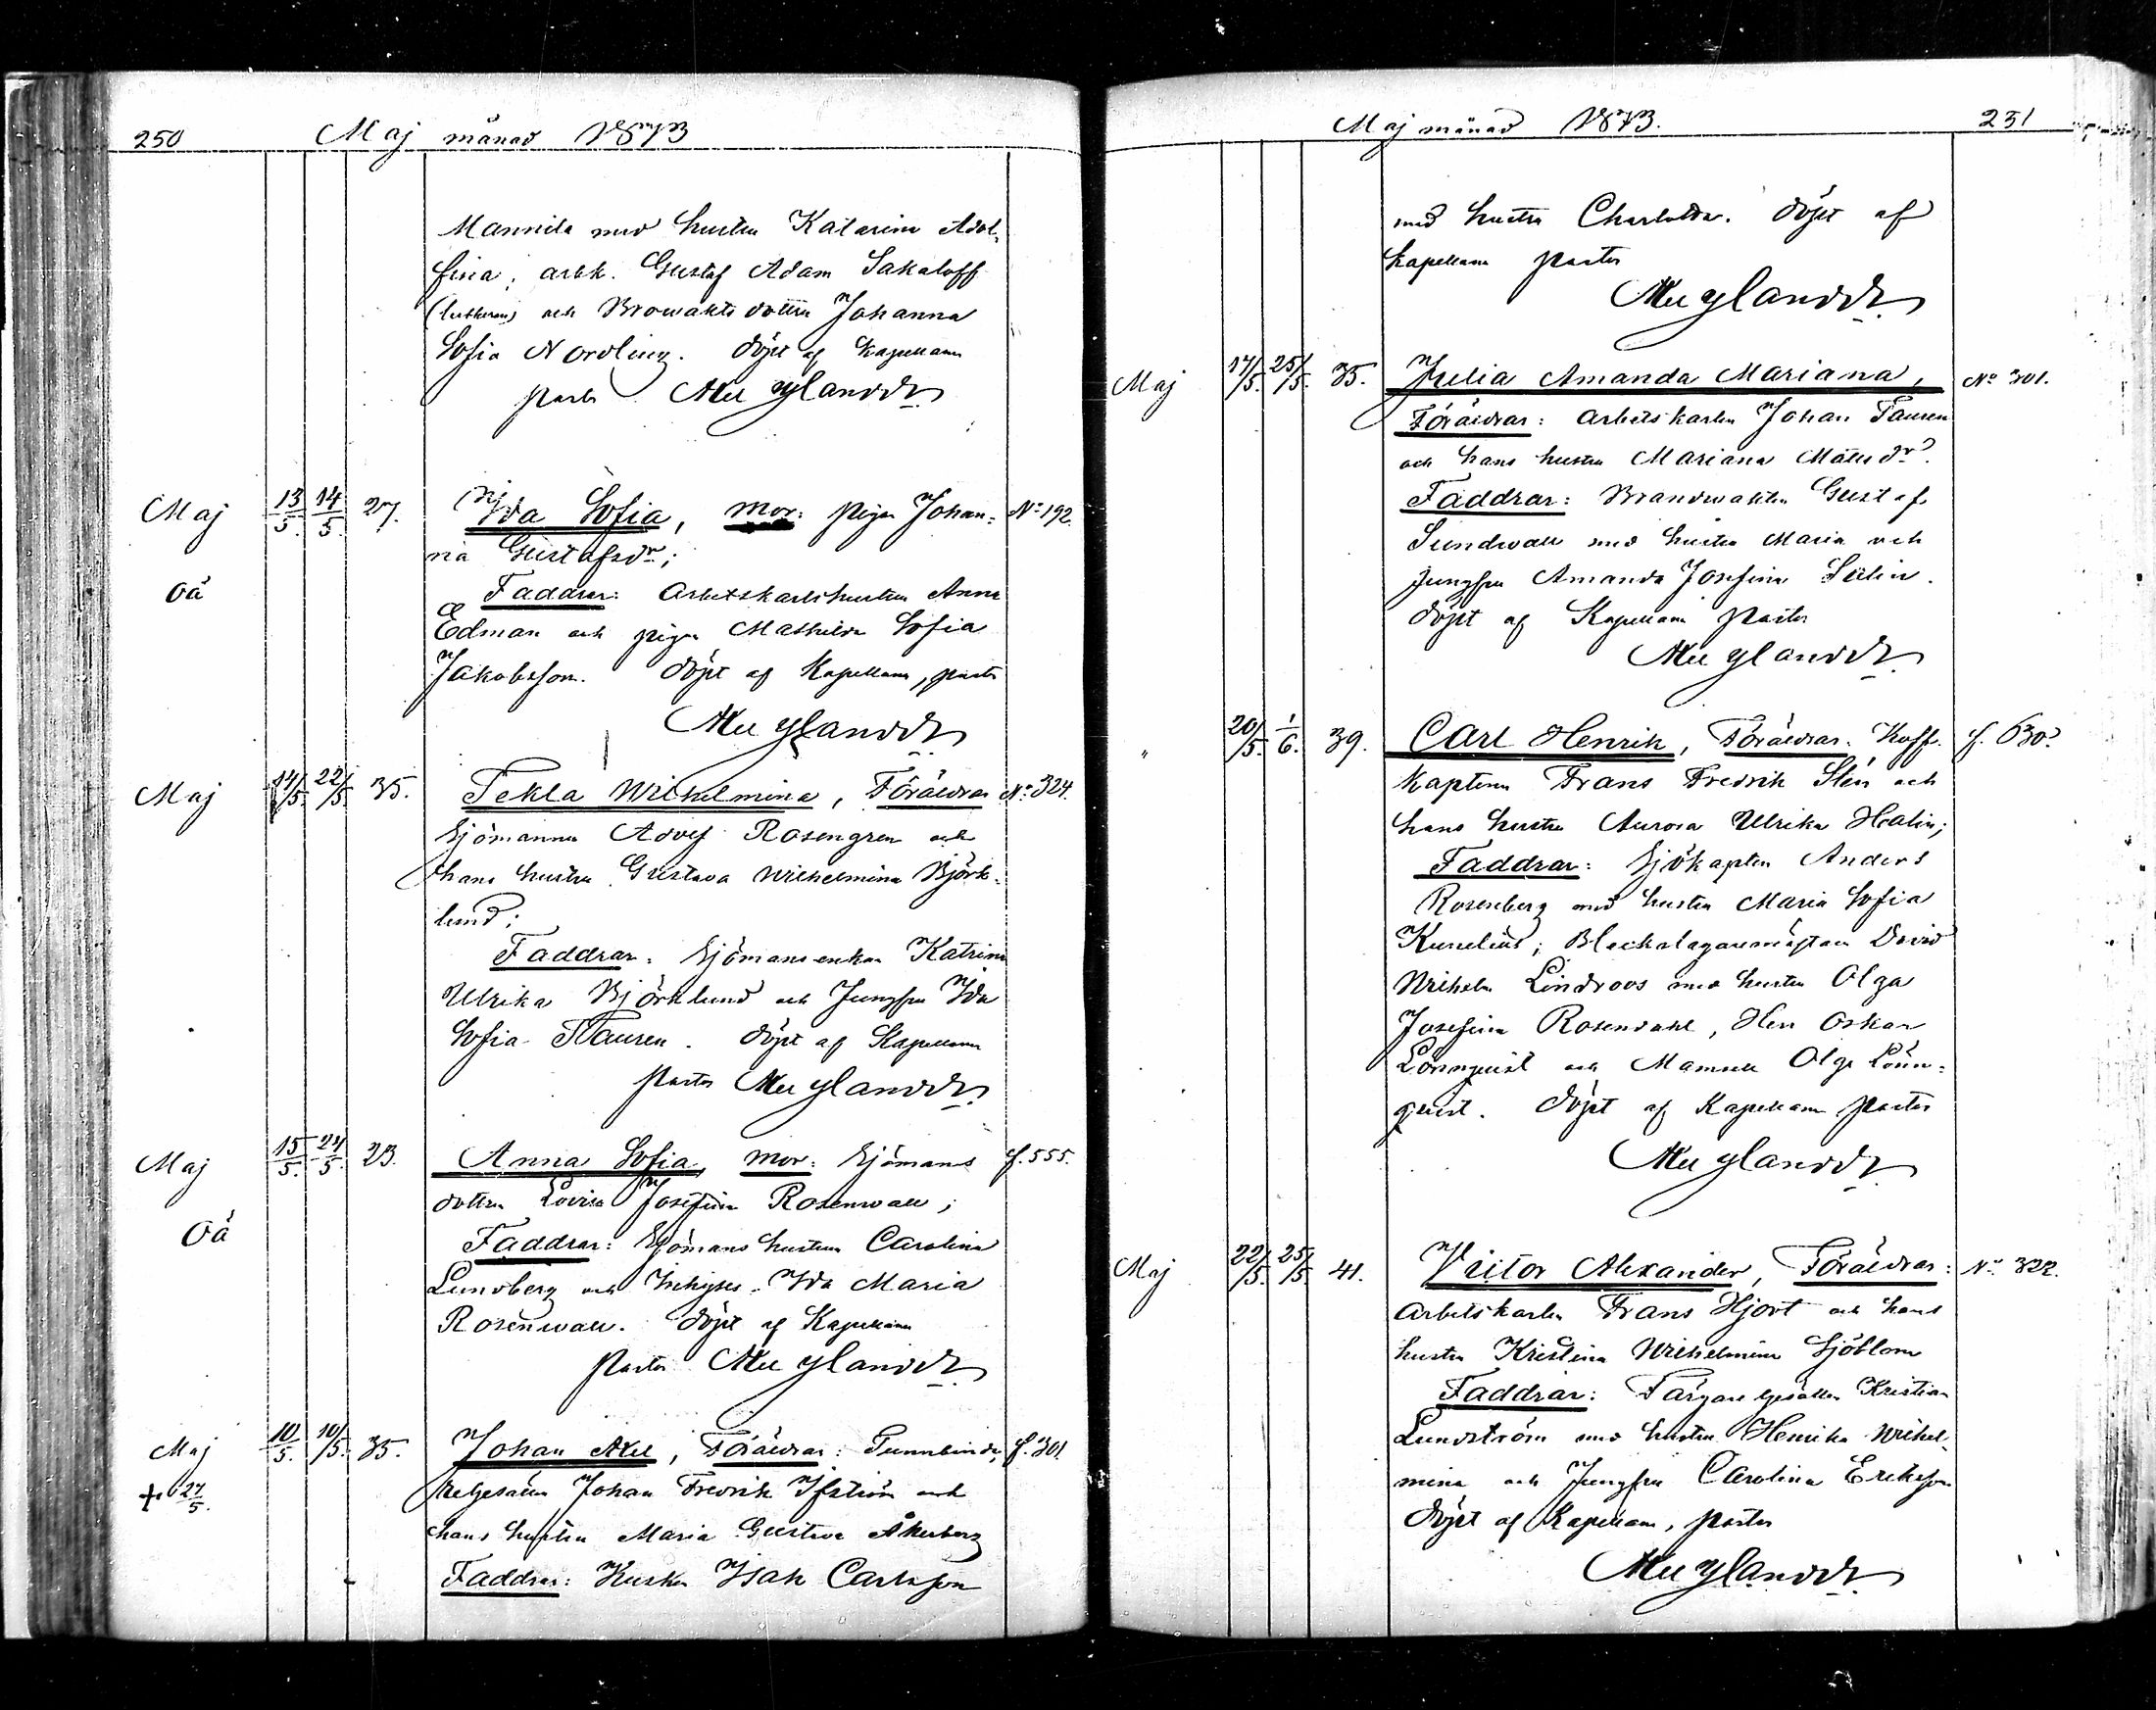 250 Maj månad 1873
Mannila med hustru Katarina Adol-
fina; arbk. Gustaf Adam Sakaloff
(lutheran) och Browakts dottern Johanna
Sofia Nordling. döpt af Kapellan
pastor Mu ylander
Maj 13/5. 14/5. 27. Ida Sofia, mor: pigan Johan= No 192.
na Gustafsdr;
oä Faddrar: arbetskarlshustrun Anna
Edman och pigan Mathilda Sofia
Jakobsson. döpt af Kapellan, pastor
Mu ylander
Maj 14/5. 22/5. 35. Tekla Wilhelmina, Föräldrar No 324.
Sjömannen Adolf Rosengren och
hans hustru Gustava Wilhelmina Björk=
lund;
Faddrar: Sjömansenkan Katrina
Ulrika Björklund och Jungfru Ida
Sofia Tauren. döpt af Kapellanen
pastor Mu ylander
Maj 15/5. 24/5. 23. Anna Sofia, mor: Sjömans f. 555.
dottern Lovisa Josefina Rosenwall;
Oä Faddrar: Sjömans hustrun Carolina
Lundberg och Inhyses. Ida Maria
Rosenwall. döpt af Kapellanen
pastor Mu ylander
Maj 10/5. 10/5. 35. Johan Axel, Föräldrar: Tunnbinda- f. 301.
+ 27/5. regesällen Johan Fredrik Ifström och
hans hustru Maria Gustava Åkerberg
Faddrar: Kusken Isak Carlsson
Maj månad 1873. 231
med hustru Charlotta. döpt af
Kapellan pastor
Mu ylander
Maj 17/5. 25/5. 35. Julia Amanda Mariana, No 301.
Föräldrar: arbetskarlen Johan Tauren
och hans hustru Mariana Matsdr.
Faddrar: Brandwakten Gustaf
Sundwall med hustru Maria och
jungfru Amanda Josefina Selin.
döpt af Kapellan pastor
Mu ylander
" 20/5. 1/6. 39. Carl Henrik, Föräldrar. Koff. f. 630.
kaptenen Frans Fredrik Sten och
hans hustru Aurora Ulrika Hralin;
Faddrar: Sjökapten Anders
Rosenberg med hustru Maria Sofia
Kunelius; Bleckslagaremästaren David
Wilhelm Lindroos med hustru Olga
Josefina Rosendahl, Herr Oskar
Lönnquist och Mamsell Olga Lönn=
quist. döpt af Kapellan pastor
Mu ylander
Maj 22/5. 25/5. 41. Viktor Alexander, Föräldrar: No 322.
arbetskarlen Frans Hjort och hans
hustru Kristina Wilhelmina Sjöblom
Faddrar: Färgaregesällen Kristian
Lundström med hustru Henrika Wilhel-
mina och Jungfru Carolina Eriksson
döpt af Kapellan, pastor
Mu ylander